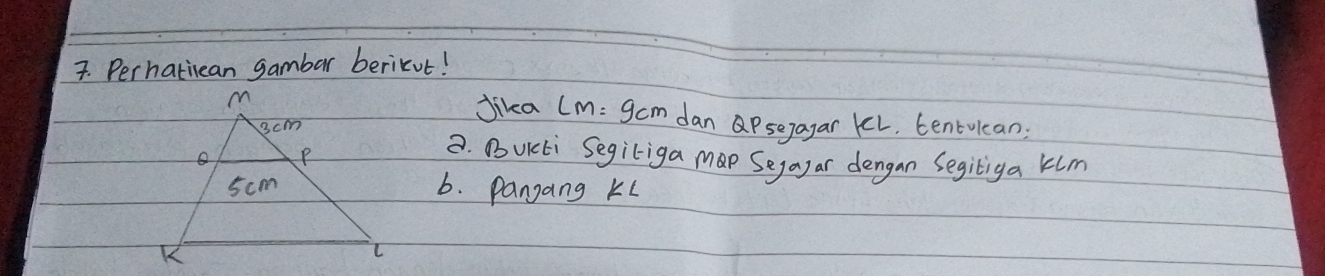 7. Perhatikan gambar berikut!
M
3cm
Q
P
5cm
K
L
Jika LM = 9cm dan QP sejajar KL. tentukan:
a. Bukti Segitiga MQP Sejajar dengan Segitiga KLM
b. Panjang KL